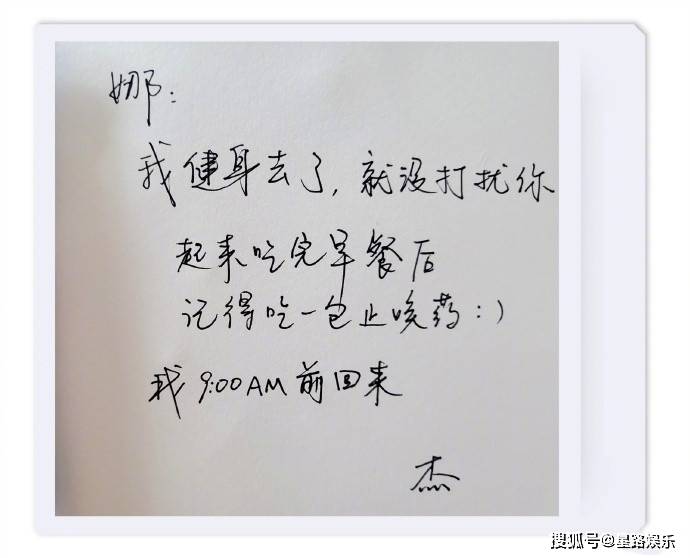 娜:
我健身去了,就没打扰你
起来吃完早餐后
记得吃一包止咳药:)
我9:00AM前回来
杰
搜狐号@星路娱乐